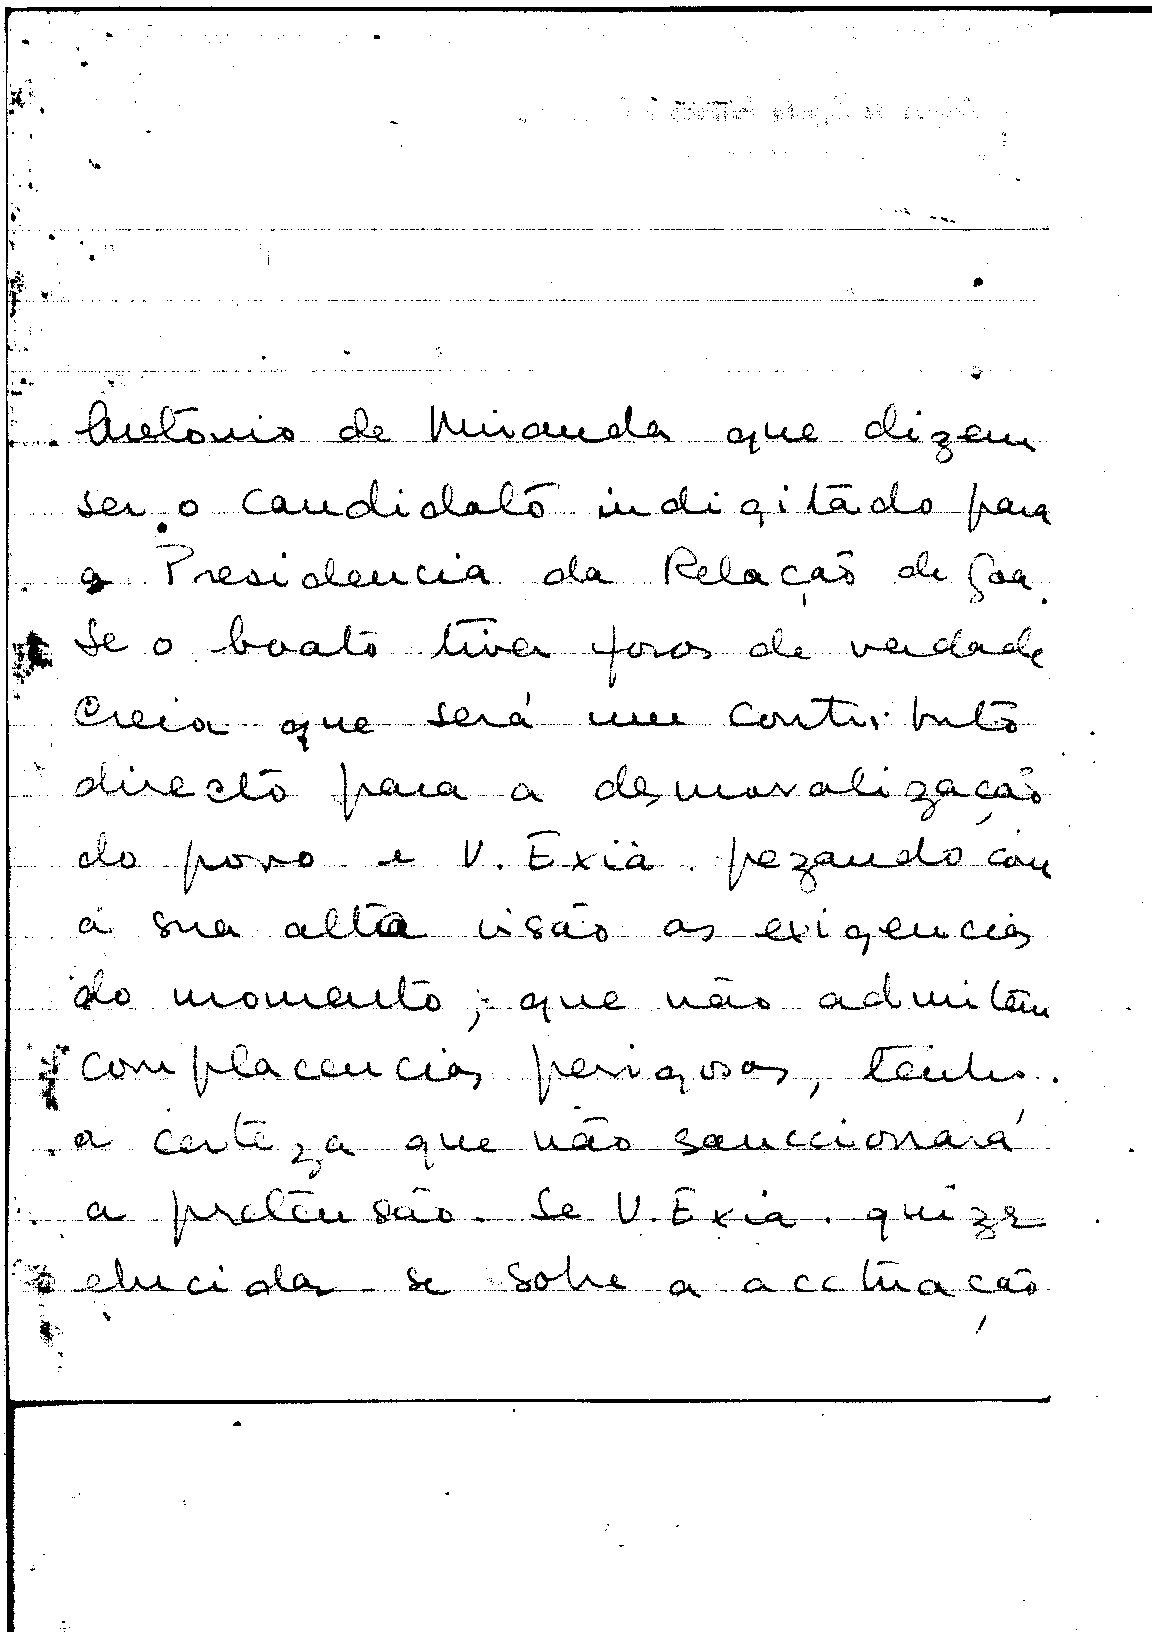 António de Miranda que dizem
ser o candidato indigitado para
a Presidencia da Relação de Goa.
Se o boato tiver foros de verdade
Creia que será um contributo
directo para a desmoralização
do povo e V. Exia. pezando com
a sua alta visão as exigencias
do momento, que não admitem
complacencias perigosas, tenho
a certeza que não sanccionará
a pretensão. Se V. Exia. quizer
elucidar-se sobre a acctuação